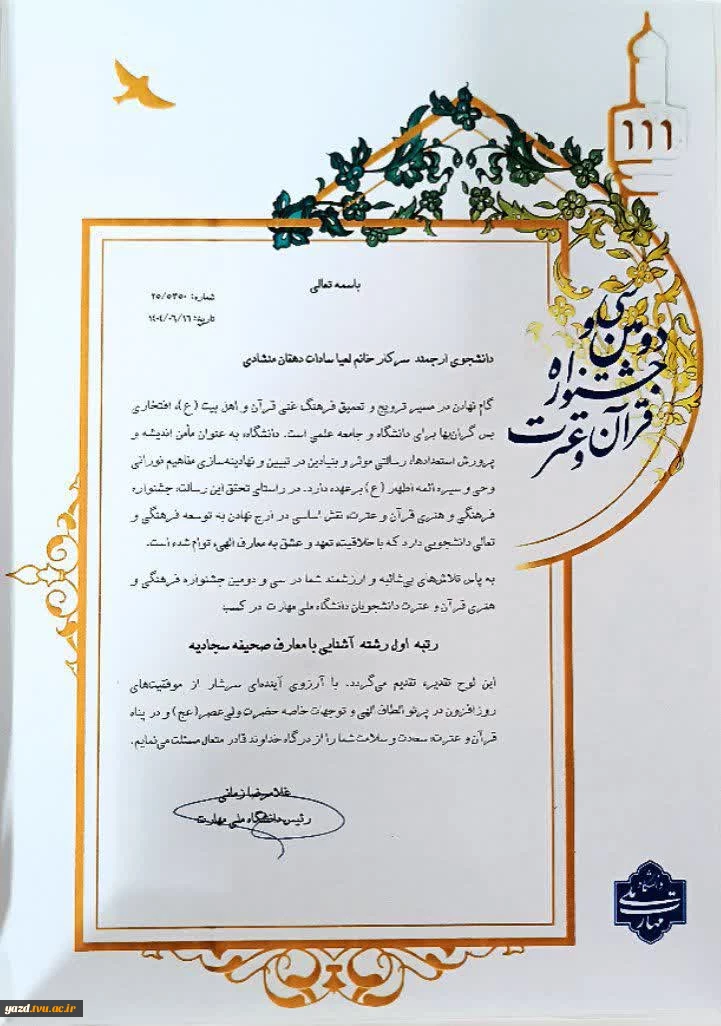 ۱۱۱
سی و
دومین
جشنواره
قرآن
و عترت
باسمه تعالی
شماره: ۲۵/۵۳۵۰
تاریخ: ۱۴۰۴/۰۶/۱۶
دانشجوی ارجمند سرکار خانم لعیا سادات دهقان منشادی
گام نهادن در مسیر ترویج و تعمیق فرهنگ غنی قرآن و اهل بیت (ع)، افتخاری
بس گران‌بها برای دانشگاه و جامعه علمی است. دانشگاه، به عنوان مأمن اندیشه و
پرورش استعدادها، رسالتی موثر و بنیادین در تبیین و نهادینه‌سازی مفاهیم نورانی
وحی و سیره ائمه اطهر (ع) برعهده دارد. در راستای تحقق این رسالت، جشنواره
فرهنگی و هنری قرآن و عترت، نقش اساسی در ارج نهادن به توسعه فرهنگی و
تعالی دانشجویی دارد که با خلاقیت، تعهد و عشق به معارف الهی، توام شده است.
به پاس تلاش‌های بی‌شائبه و ارزشمند شما در سی و دومین جشنواره فرهنگی و
هنری قرآن و عترت دانشجویان دانشگاه ملی مهارت در کسب
رتبه اول رشته آشنایی با معارف صحیفه سجادیه
این لوح تقدیر، تقدیم می‌گردد. با آرزوی آینده‌ای سرشار از موفقیت‌های
روزافزون در پرتو الطاف الهی و توجهات خاصه حضرت ولی‌عصر (عج) و در پناه
قرآن و عترت، سعادت و سلامت شما را از درگاه خداوند قادر متعال مسئلت می‌نمایم.
غلامرضا زمانی
رئیس دانشگاه ملی مهارت
دانشگاه
ملی
مهارت
yazd.tvu.ac.ir